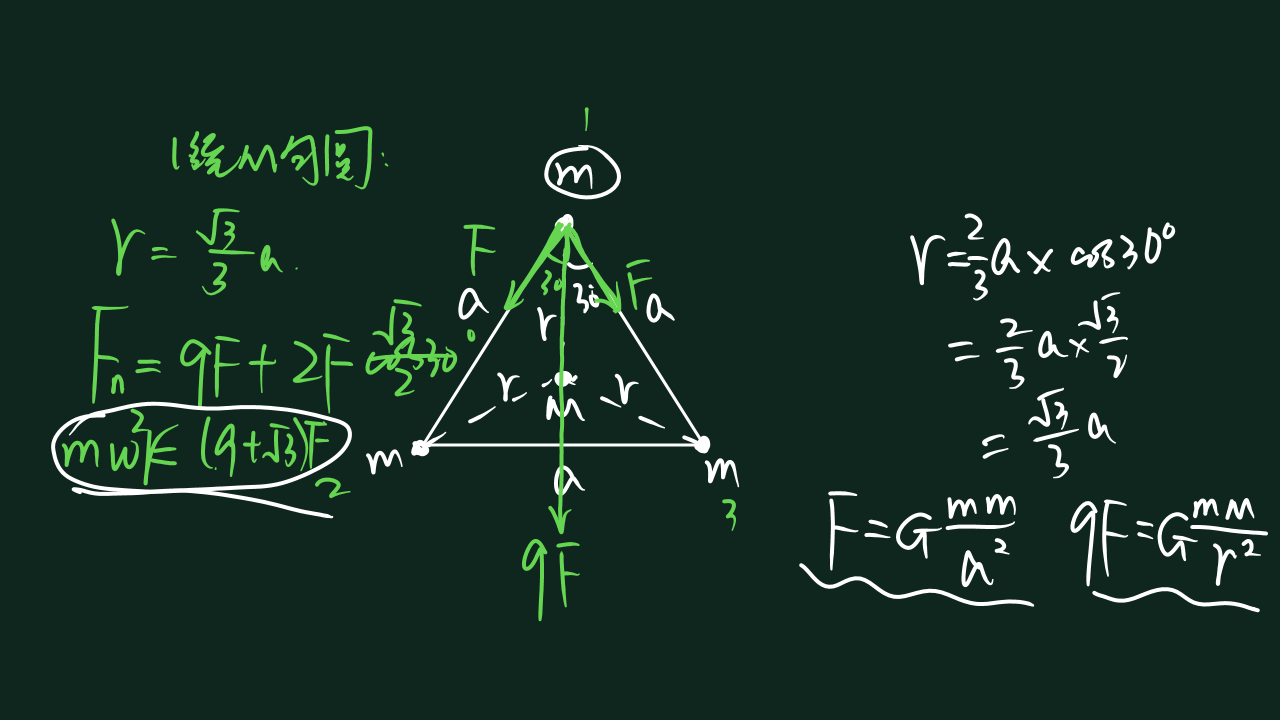 1绕M匀圆:
r = √3/3 a.
Fn = 9F + 2F √3/2
mω²r = (9+√3)F
1
m
F
F
30
30
a
a
r
r
r
M
m
2
m
3
a
9F
r = 2/3 a × cos30°
= 2/3 a × √3/2
= √3/3 a
F = G mm/a²
9F = G mM/r²